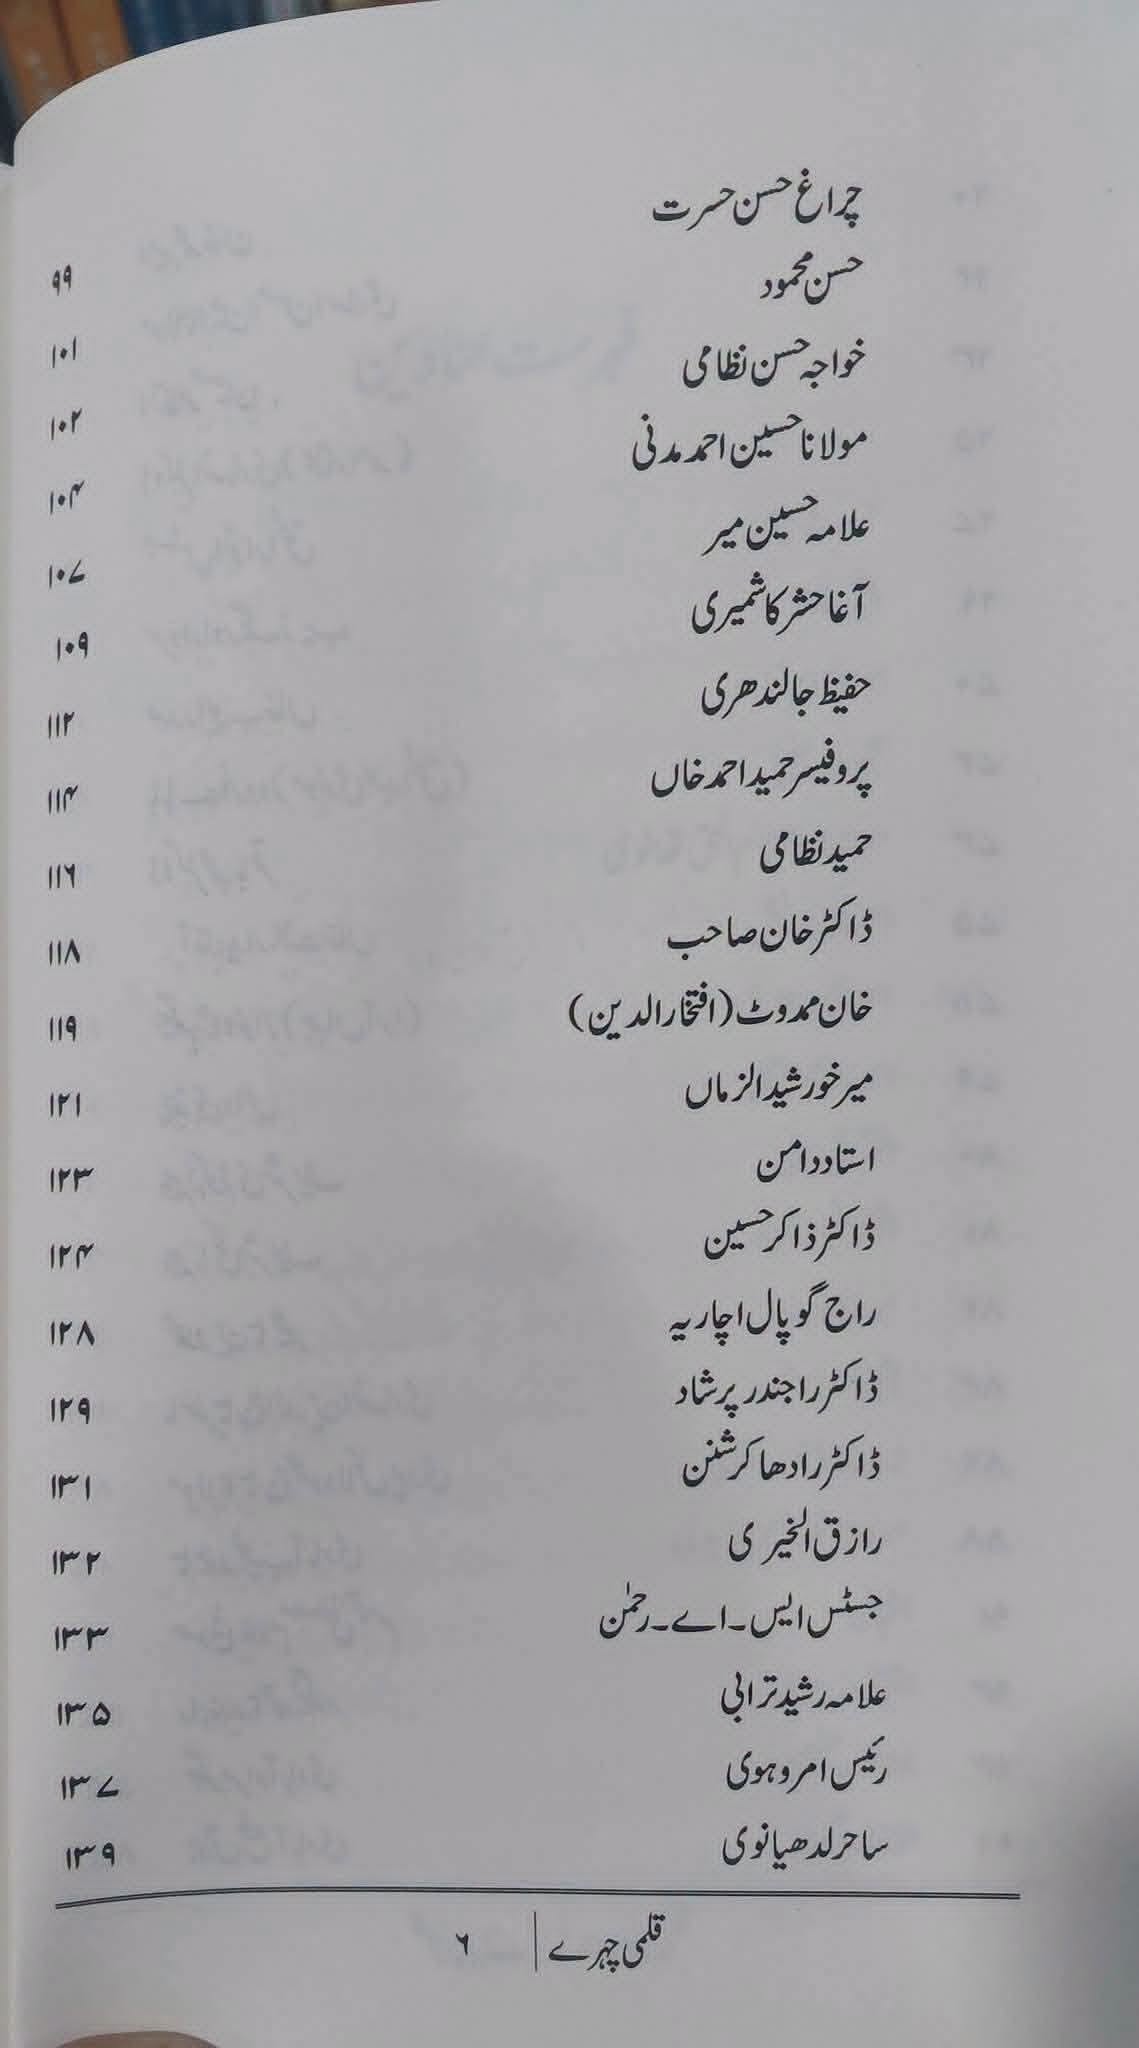 چراغ حسن حسرت ۹۹
حسن محمود ۱۰۱
خواجہ حسن نظامی ۱۰۲
مولانا حسین احمد مدنی ۱۰۴
علامہ حسین میر ۱۰۷
آغا حشر کاشمیری ۱۰۹
حفیظ جالندھری ۱۱۲
پروفیسر حمید احمد خاں ۱۱۴
حمید نظامی ۱۱۶
ڈاکٹر خان صاحب ۱۱۸
خان ممدوٹ (افتخار الدین) ۱۱۹
میر خورشید الزماں ۱۲۱
استاد دامن ۱۲۳
ڈاکٹر ذاکر حسین ۱۲۴
راج گوپال اچاریہ ۱۲۸
ڈاکٹر راجندر پرشاد ۱۲۹
ڈاکٹر رادھا کرشنن ۱۳۱
رازق الخیری ۱۳۲
جسٹس ایس۔اے۔رحمٰن ۱۳۳
علامہ رشید ترابی ۱۳۵
رئیس امروہوی ۱۳۷
ساحر لدھیانوی ۱۳۹
قلمی چہرے | ۶